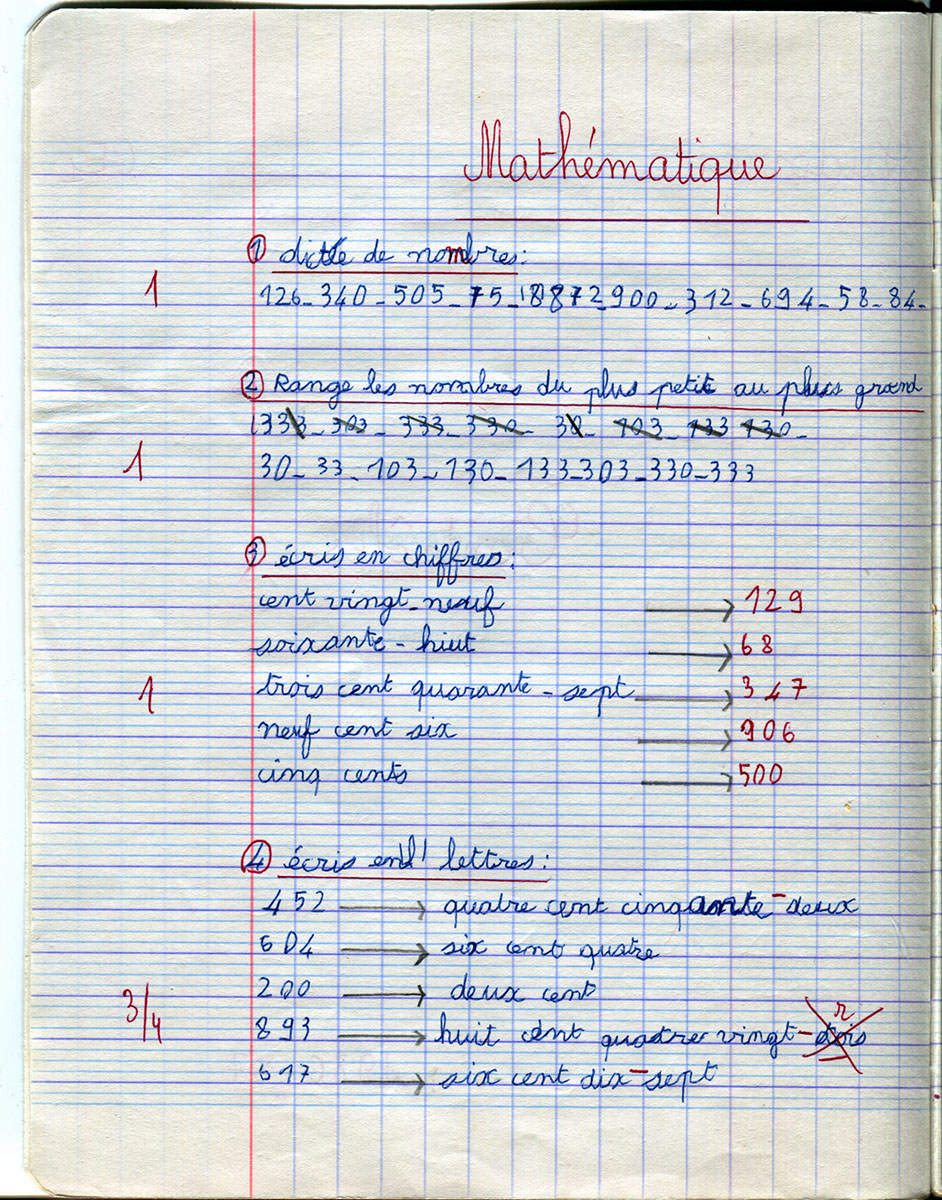 Mathématique
① dictée de nombres :
1
126_340_505_75_188 72_900_312_694_58_84_
② Range les nombres du plus petit au plus grand
333_303_333_330_30_103_133 130_
1
30_33_103_130_133_303_330_333
③ écris en chiffres :
cent vingt-neuf → 129
soixante-hiut → 68
1
trois cent quarante-sept → 347
neuf cent six → 906
cinq cents → 500
④ écris en lettres :
452 → quatre cent cinquante-deux
604 → six cent quatre
200 → deux cent
3/4
893 → huit cent quatre vingt-
r
617 → six cent dix-sept